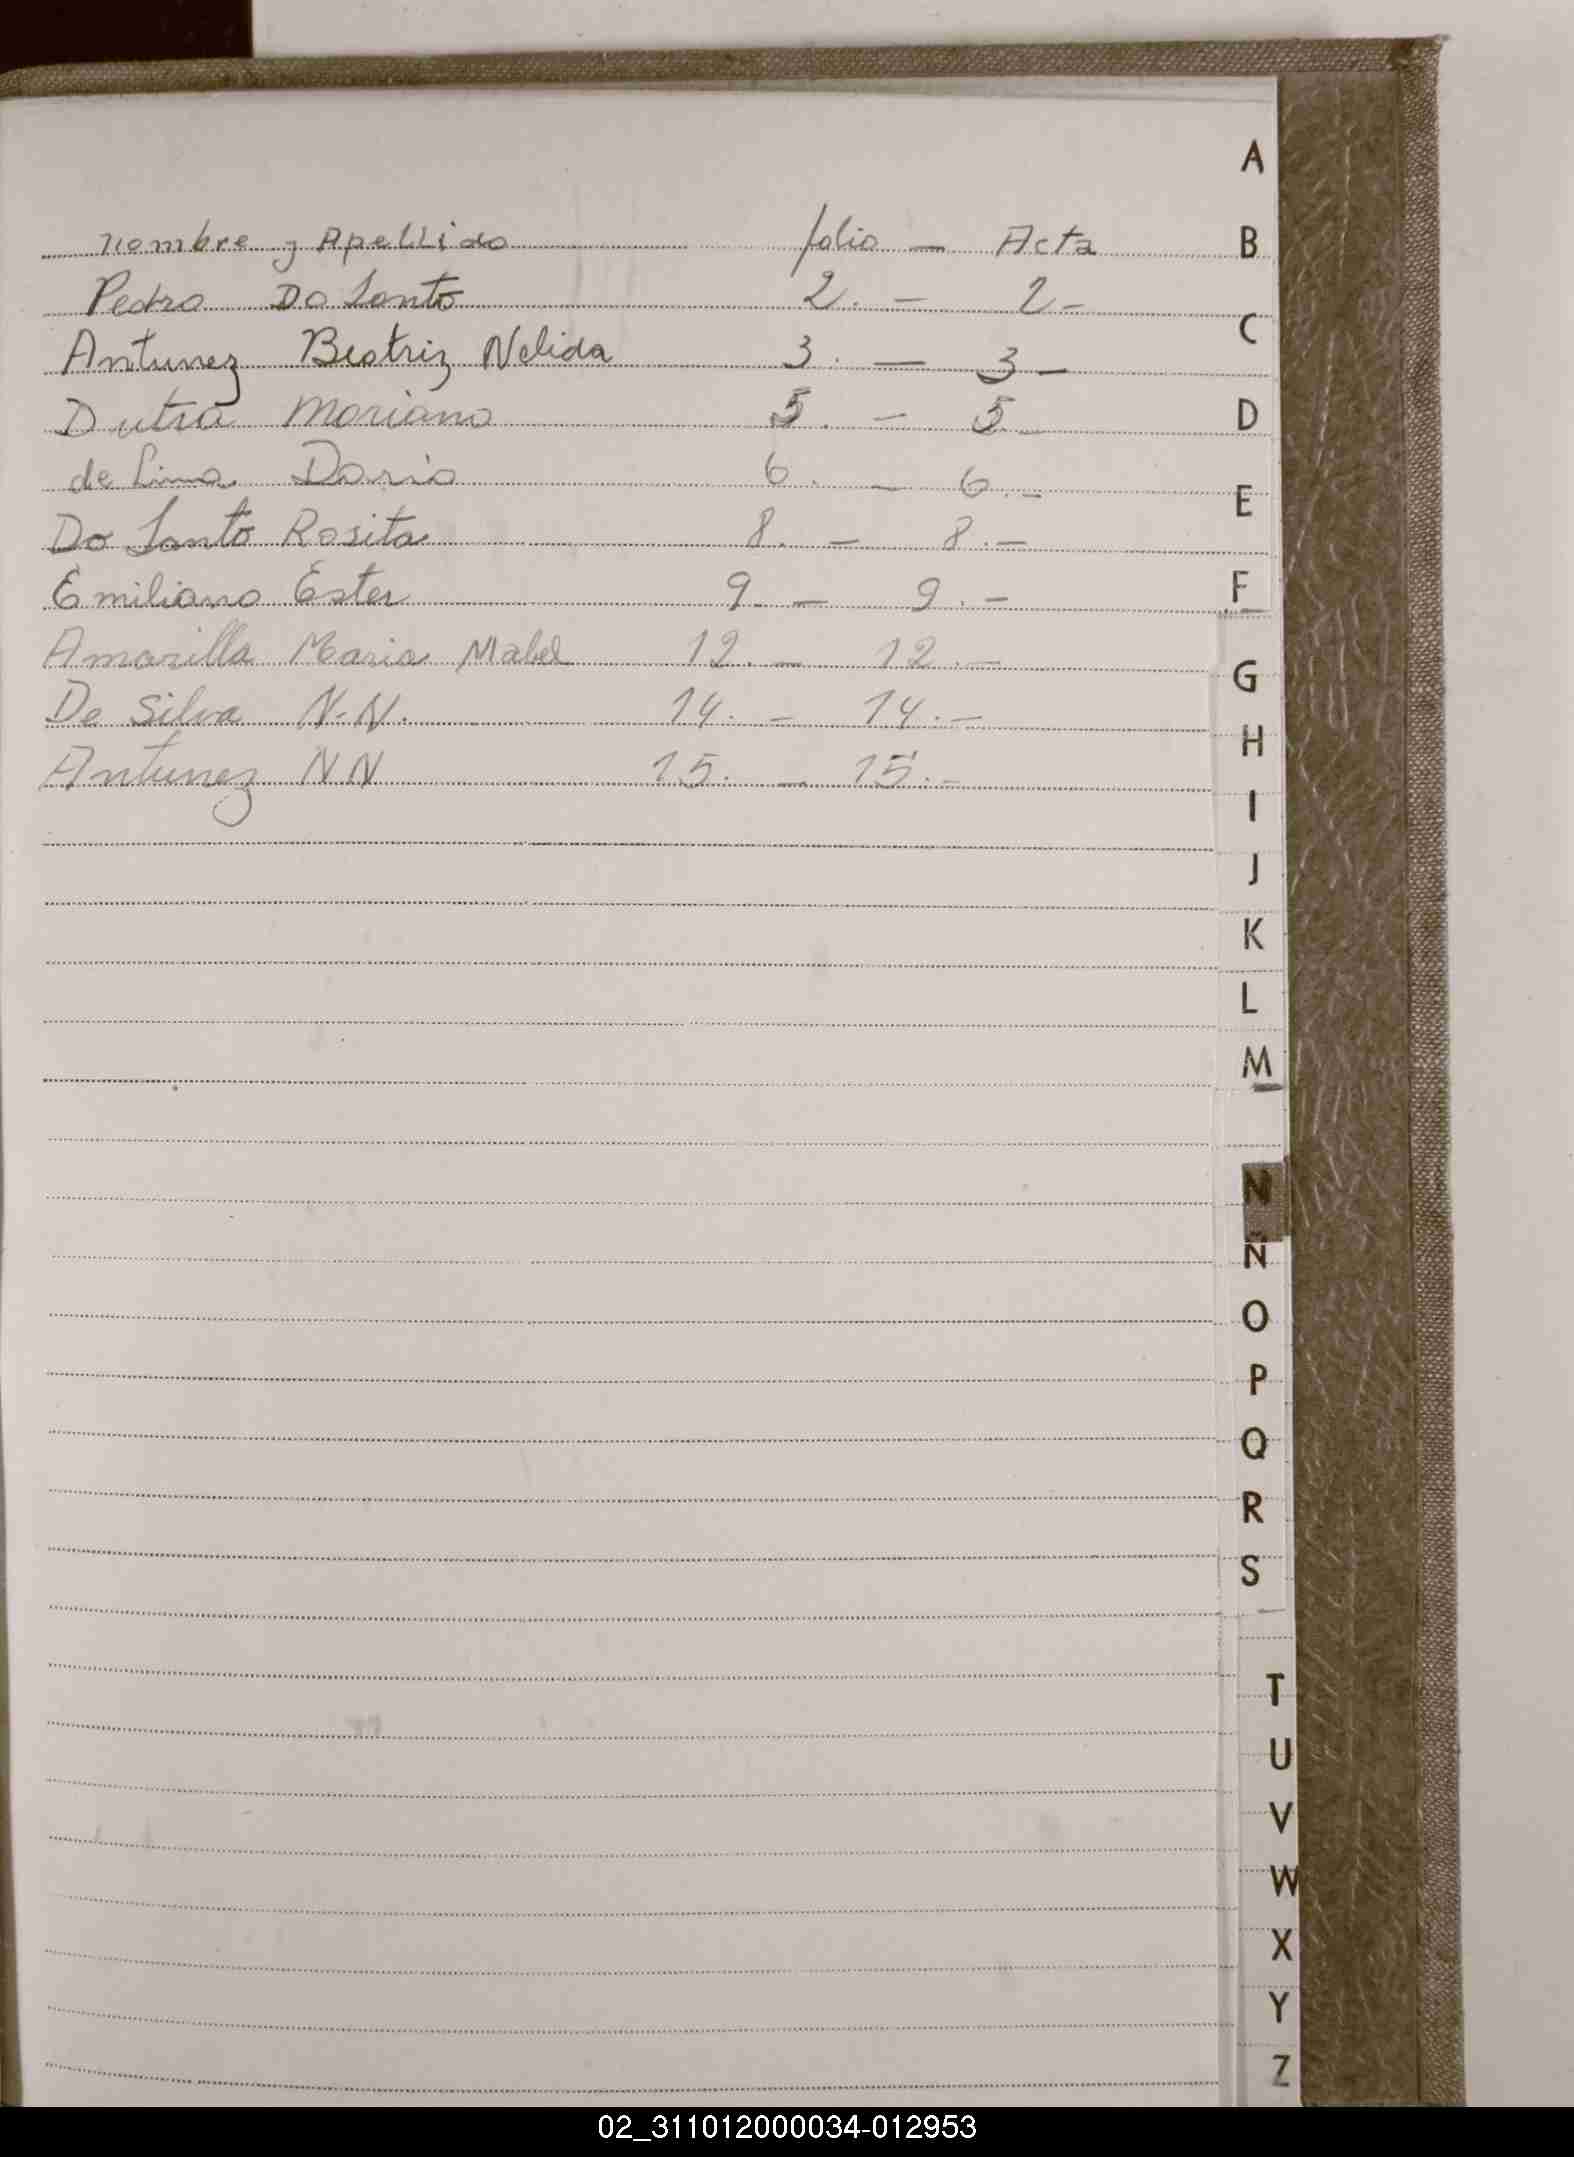 A
Nombre y Apellido folio — Acta B
Pedro Do Santo 2. — 2 —
Antunez Beatriz Nelida 3. — 3 — C
Dutra Mariano 5. — 5 — D
de Lima Dario 6. — 6. —
E
Do Santo Rosita 8. — 8. —
Emiliano Ester 9. — 9. — F
Amarilla Maria Mabel 12. — 12. —
G
De Silva N.N. 14. — 14. —
H
Antunez NN 15. — 15. —
I
J
K
L
M
N
Ñ
O
P
Q
R
S
T
U
V
W
X
Y
Z
02_311012000034-012953